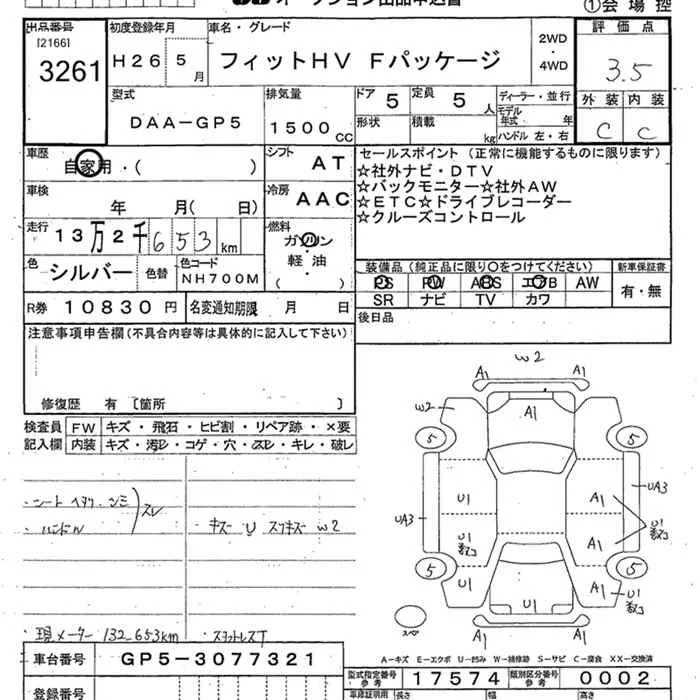 オークション出品申込書
①会場控
出品番号 初度登録年月 車名・グレード 評価点
[2166]
3261 H26 5月 フィットHV Fパッケージ 2WD ・ 4WD 3.5
型式 排気量 ドア 5 定員 5人 ディーラー・並行 外装 内装
DAA-GP5 1500cc 形状 積載 kg モデル年式 年 C C
ハンドル 左・右
車歴 自家用・( ) シフト AT セールスポイント (正常に機能するものに限ります)
☆社外ナビ・DTV
車検 年 月(日) 冷房 AAC ☆バックモニター☆社外AW
☆ETC☆ドライブレコーダー
走行 13万2千653km 燃料 ガソリン・軽油 ( ) ☆クルーズコントロール
色 シルバー 色替 色コード NH700M
装備品 (純正品に限り○をつけてください) 新車保証書
PS PW ABS エアB AW 有・無
SR ナビ TV カワ
R券 10830円 名変通知期限 月 日
後日品
注意事項申告欄(不具合内容等は具体的に記入して下さい)
修復歴 有 [箇所 ]
検査員 FW キズ・飛石・ヒビ割・リペア跡・×要
記入欄 内装 キズ・汚レ・コゲ・穴・スレ・キレ・破レ
・シート ヘタリ シミ
・ハンドル スレ
・キズ U スリキズ W2
・現メーター 132,653km
・スペアレスT
W2
A1 A1
W2 A1
5 5
U1 A1
UA3 UA3
A1
U1 U1
5 5
U1 A1 U1
U1
A1 A1
スペア
A-キズ E-エクボ U-凹み W-補修跡 S-サビ C-腐食 XX-交換済
車台番号 GP5-3077321
型式指定番号 参考 17574 類別区分番号 参考 0002
登録番号
車庫証明用 長さ 幅 高さ